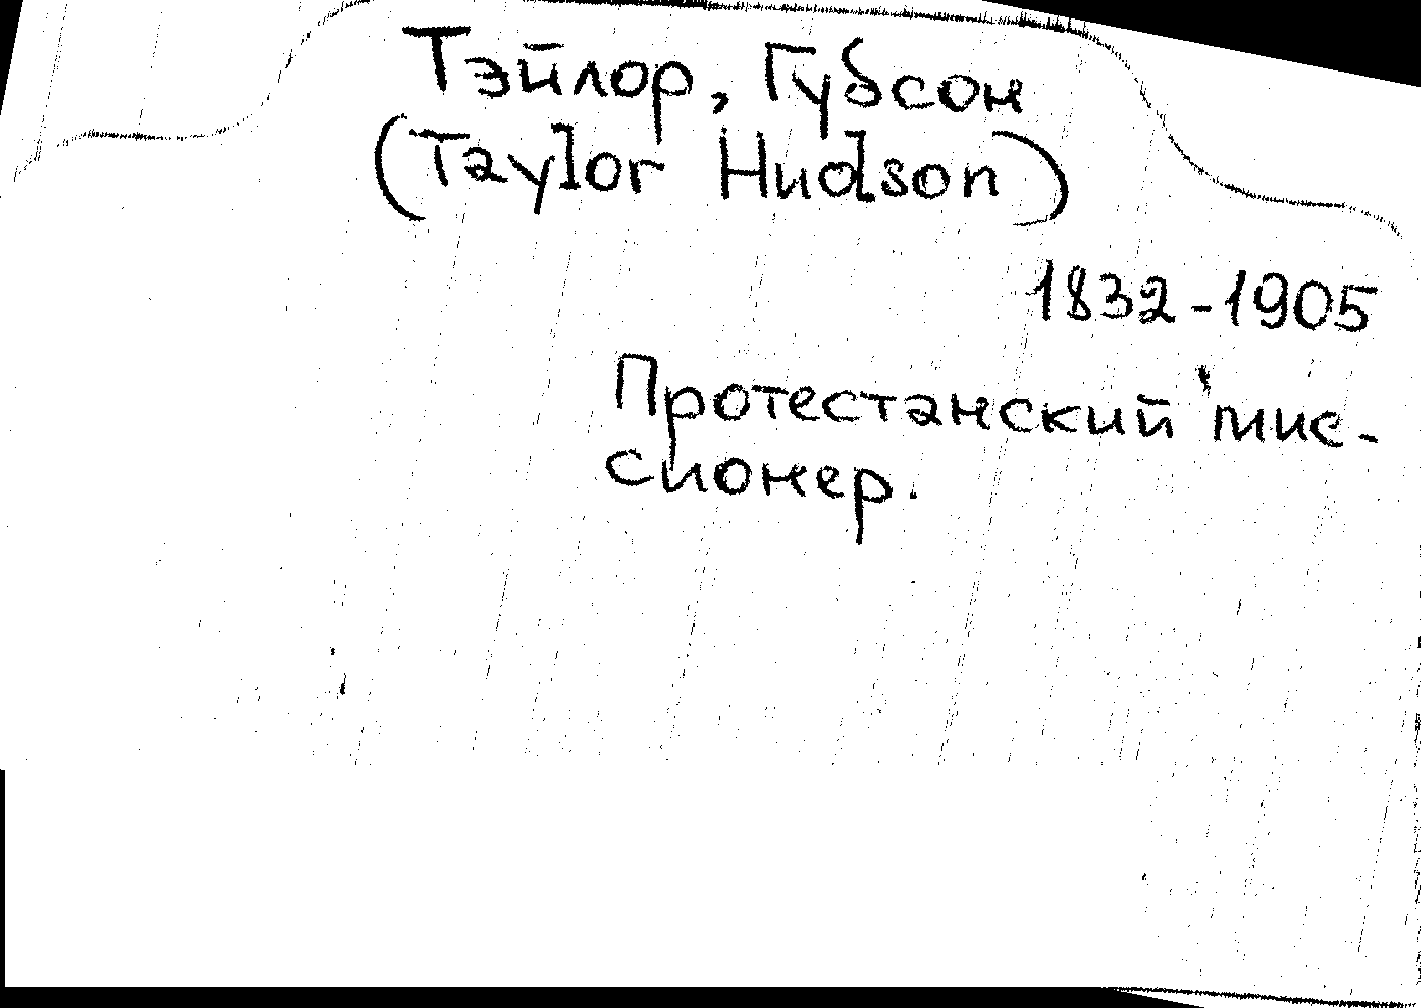 Тэйлор, Губсон
(Taylor Hudson)
1832-1905
Протестанский мис-
сионер.